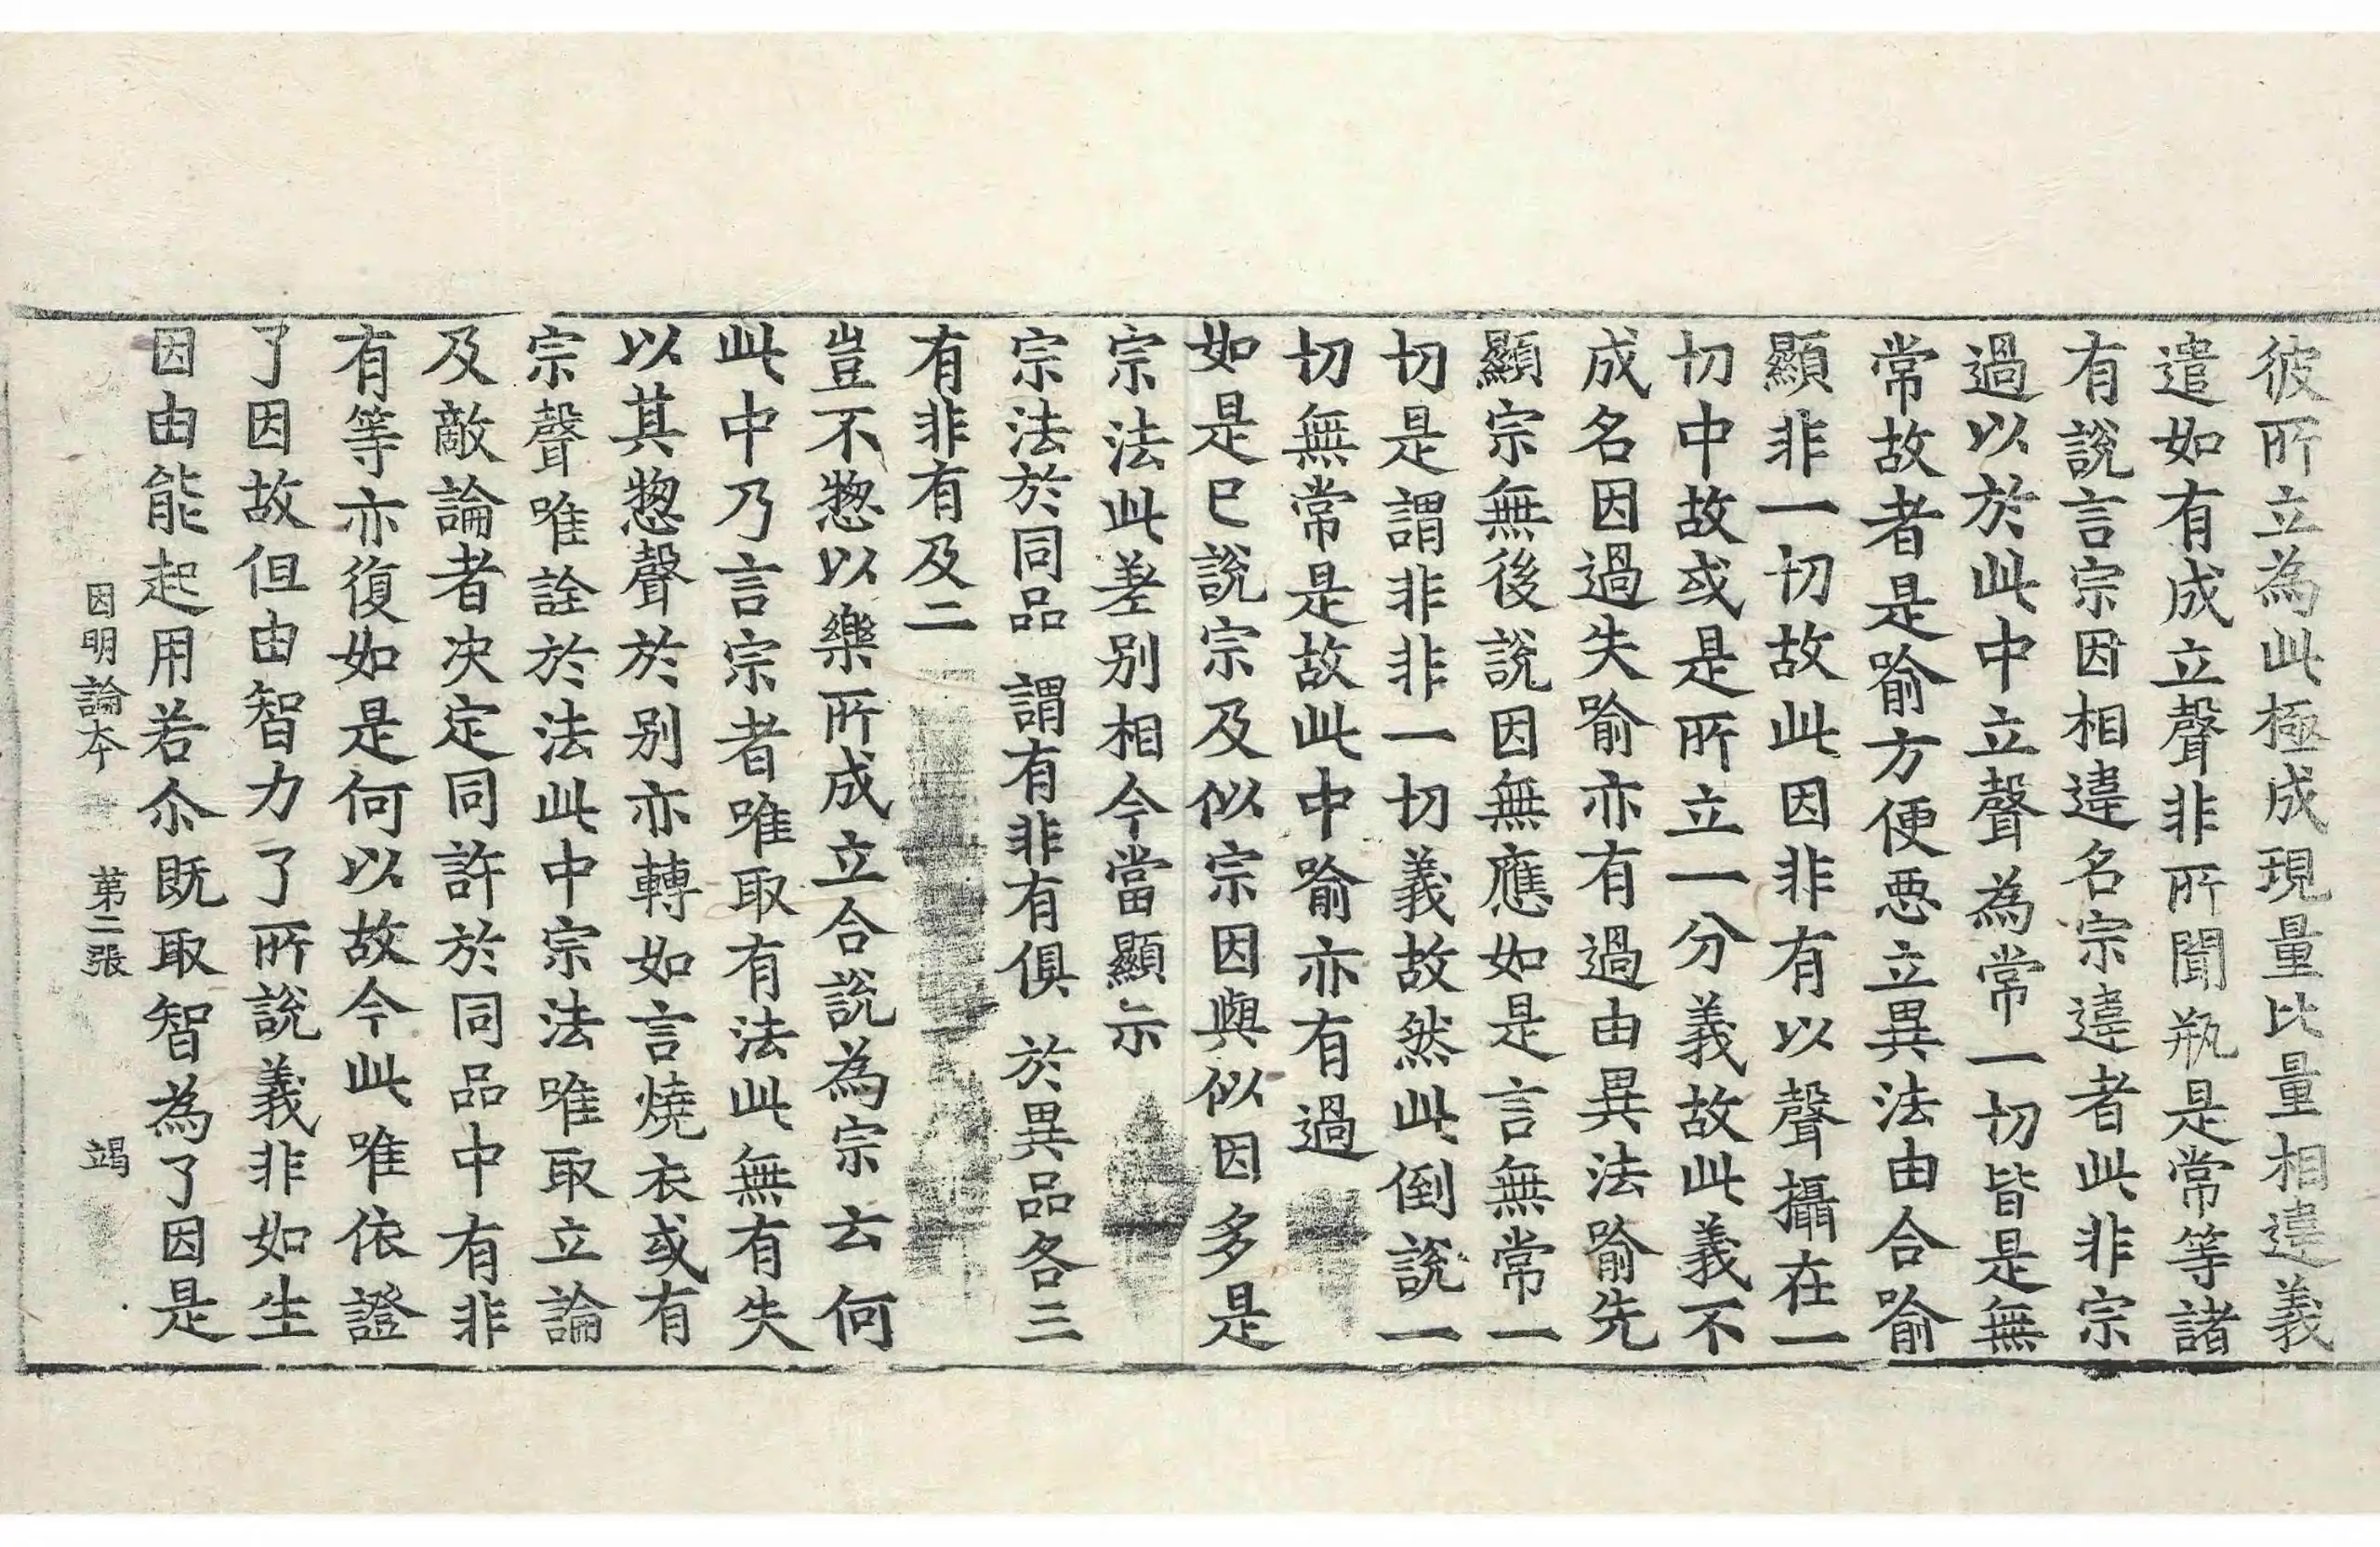 彼所立為此極成現量比量相違義
遣如有成立聲非所聞瓶是常等諸
有說言宗因相違名宗違者此非宗
過以於此中立聲為常一切皆是無
常故者是喻方便惡立異法由合喻
顯非一切故此因非有以聲攝在一
切中故或是所立一分義故此義不
成名因過失喻亦有過由異法喻先
顯宗無後說因無應如是言無常一
切是謂非非一切義故然此倒說一
切無常是故此中喻亦有過
如是已說宗及似宗因與似因多是
宗法此差別相今當顯示
宗法於同品 謂有非有俱 於異品各三
有非有及二
豈不惣以樂所成立合說為宗云何
此中乃言宗者唯取有法此無有失
以其惣聲於別亦轉如言燒衣或有
宗聲唯詮於法此中宗法唯取立論
及敵論者決定同許於同品中有非
有等亦復如是何以故今此唯依證
了因故但由智力了所說義非如生
因由能起用若尒既取智為了因是
因明論本 苐二張 竭